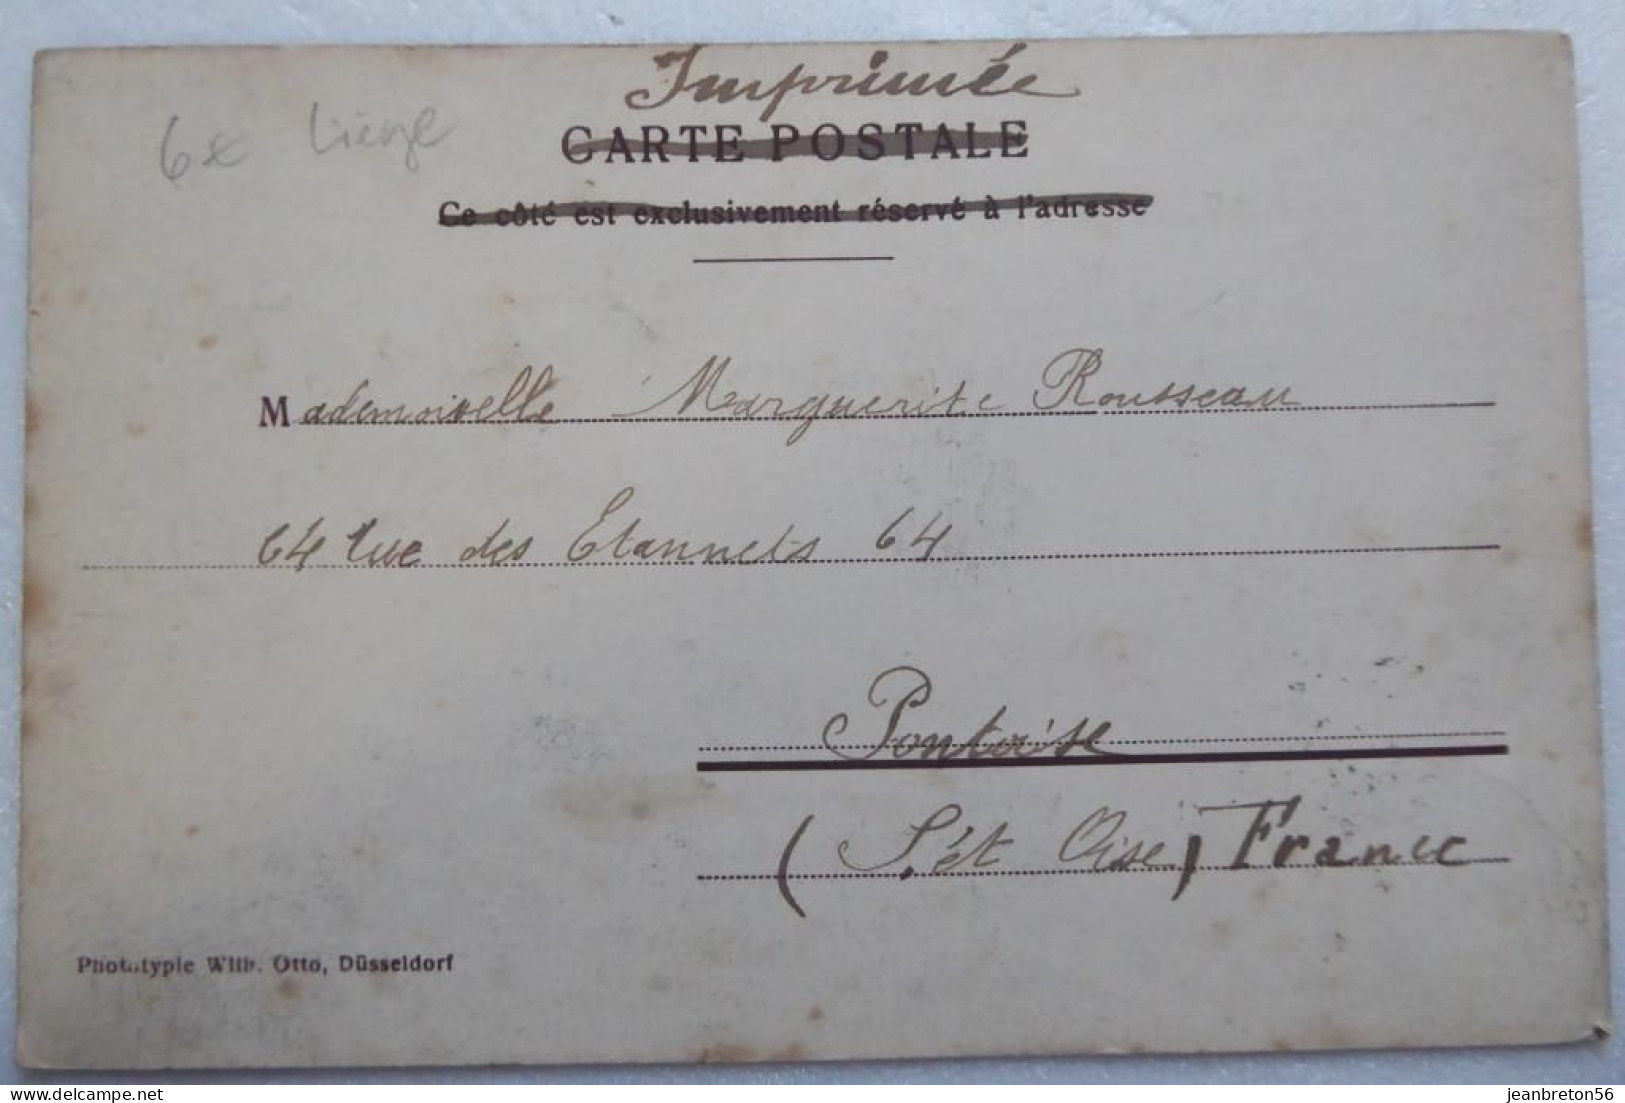 Imprimée
6€ Liège
CARTE POSTALE
Ce côté est exclusivement réservé à l'adresse
Mademoiselle Marguerite Rousseau
64 rue des Etannets 64
Pontoise
(S. et Oise) France
Phototypie Wilh. Otto, Düsseldorf
jeanbreton56